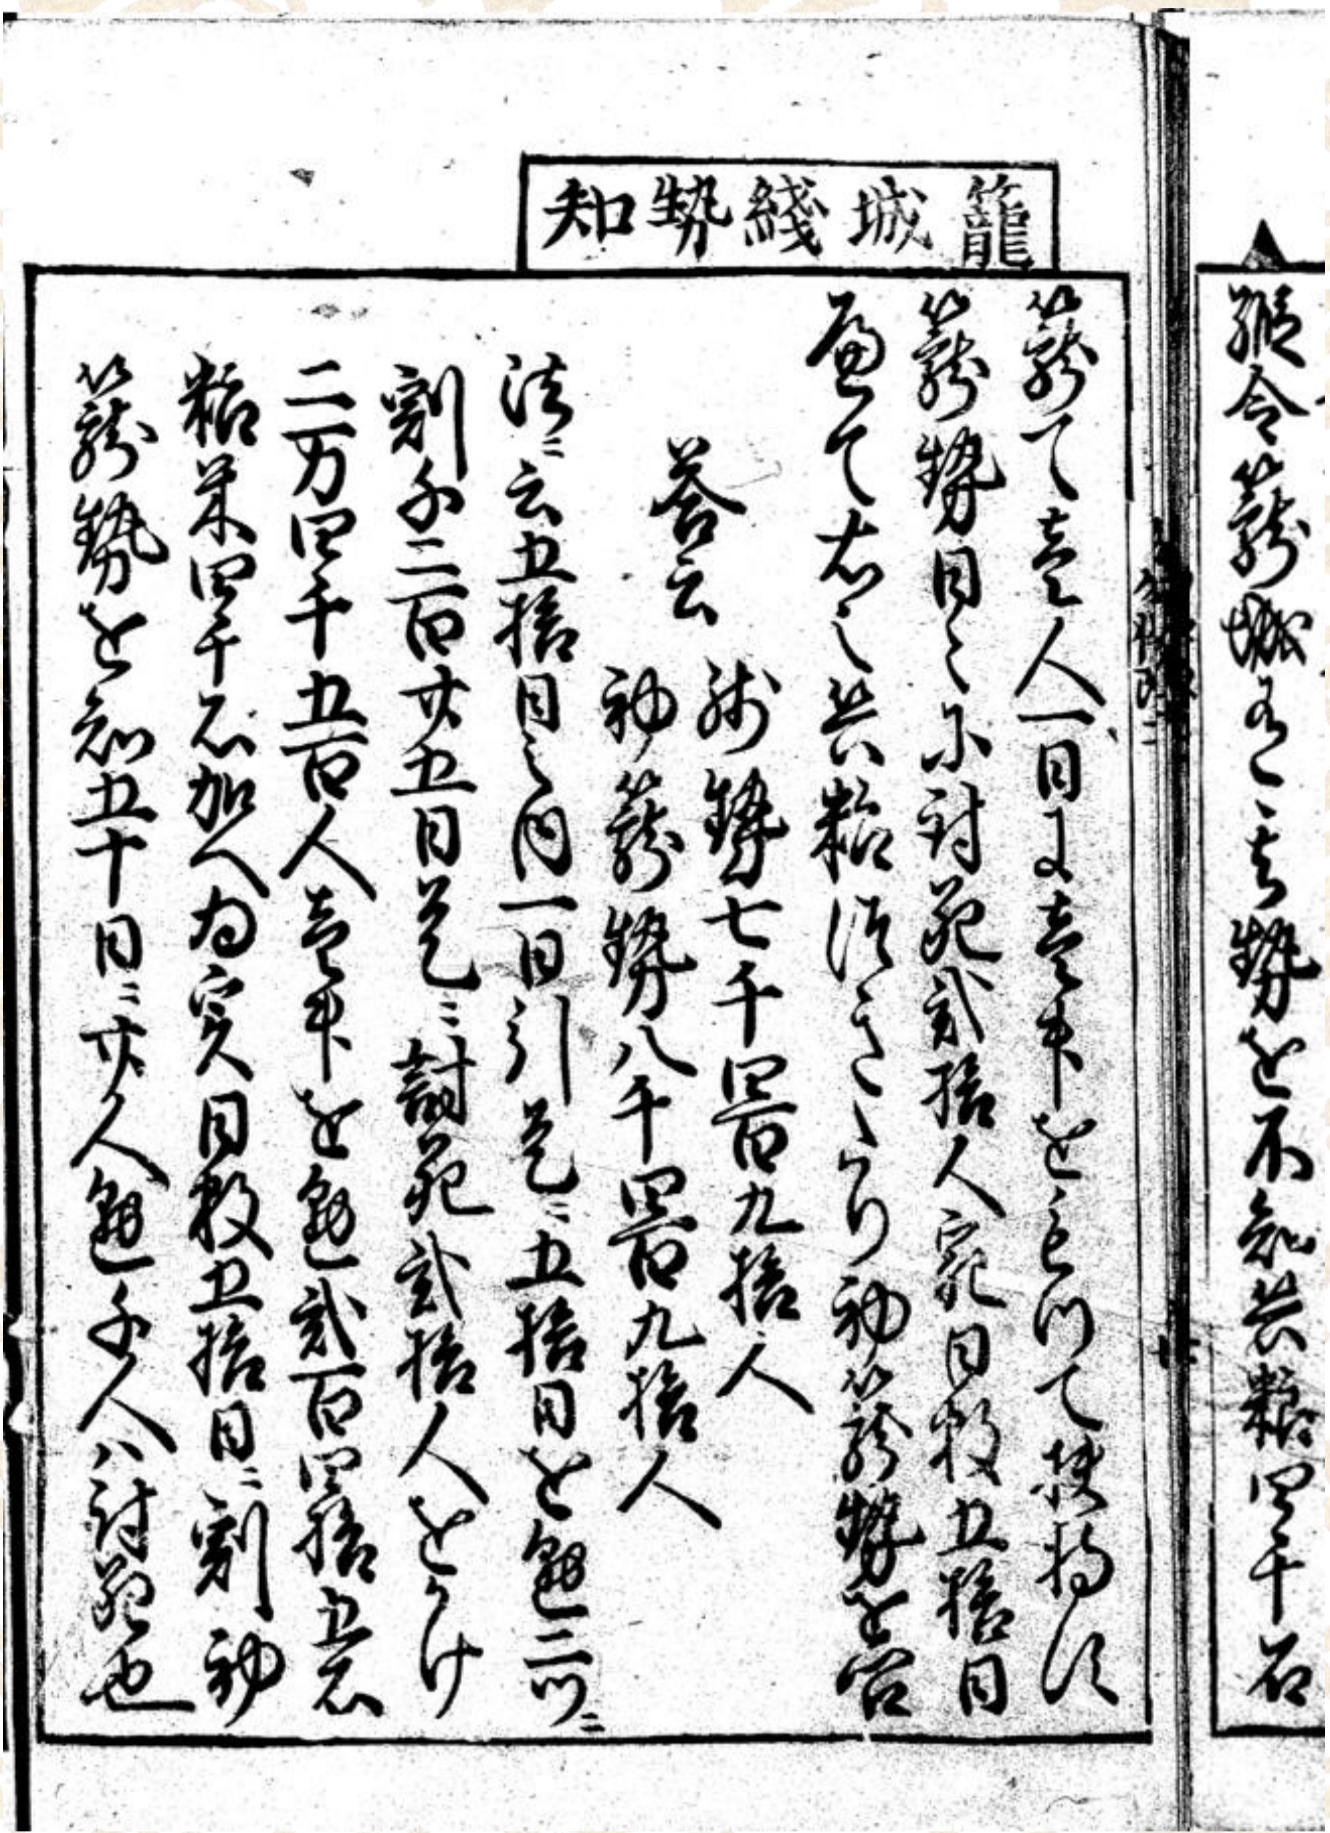 ▲縦令籠城して其勢を不知兵粮四千石
籠城綫勢知
籠て壱人一日に壱升をもつて扶持す
籠勢日々に討死弐拾人宛日数五拾日
歴て右之兵粮つきたり初籠勢を問
答云 残勢七千四百九拾人
初籠勢八千四百九拾人
法ニ云五拾日之内一日引是ニ五拾日を懸二ツニ
割千二百廿五日是ニ討死弐拾人をかけ
二万四千五百人壱升を懸弐百四拾五石
粮米四千石加へ為実日数五拾日ニ割初
籠勢を知五十日ニ廿人懸千人ハ討死也